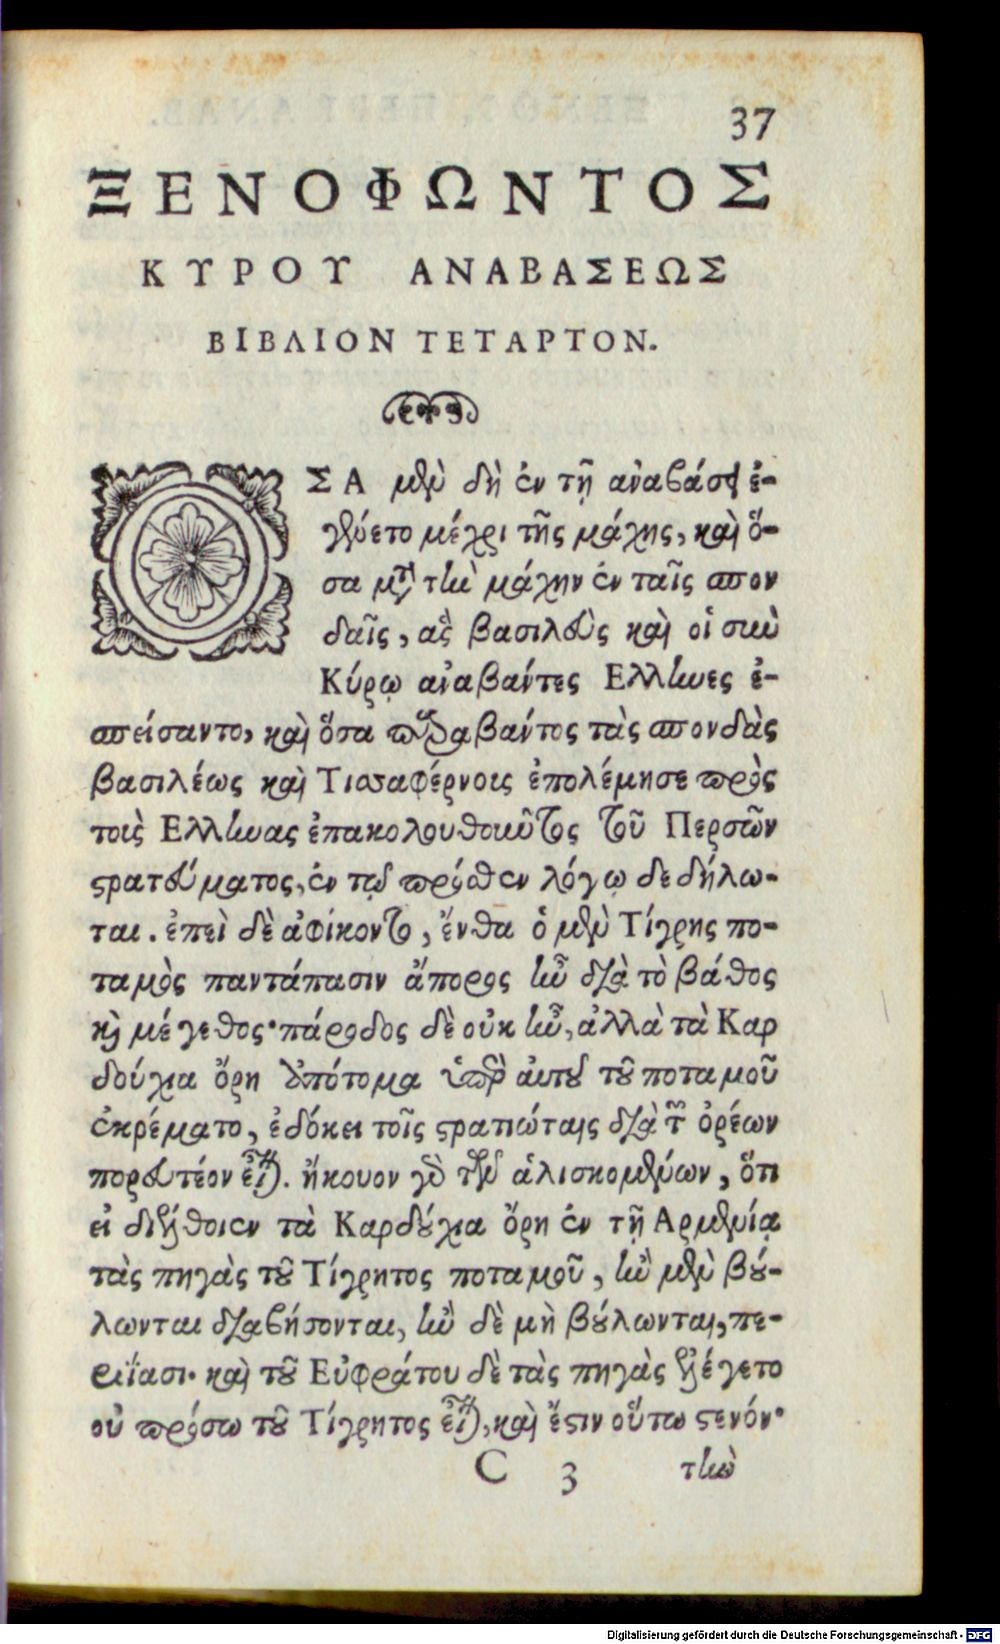 37
ΞΕΝΟΦΩΝΤΟΣ
ΚΥΡΟΥ ΑΝΑΒΑΣΕΩΣ
ΒΙΒΛΙΟΝ ΤΕΤΑΡΤΟΝ.
ΟΣΑ μὲν δὴ ἐν τῇ ἀναβάσει ἐ-
γένετο μέχρι τῆς μάχης, καὶ ὅ-
σα μετὰ τὴν μάχην ἐν ταῖς σπον
δαῖς, ἃς βασιλεὺς καὶ οἱ σὺν
Κύρῳ ἀναβάντες Ελληνες ἐ-
σπείσαντο, καὶ ὅσα παραβάντος τὰς σπονδὰς
βασιλέως καὶ Τισσαφέρνους ἐπολέμησε πρὸς
τοὺς Ελληνας ἐπακολουθοῦντος τοῦ Περσῶν
στρατεύματος, ἐν τῷ πρόσθεν λόγῳ δεδήλω-
ται. ἐπεὶ δὲ ἀφίκοντο, ἔνθα ὁ μὲν Τίγρης πο-
ταμὸς παντάπασιν ἄπορος ἦν διὰ τὸ βάθος
καὶ μέγεθος· πάροδος δὲ οὐκ ἦν, ἀλλὰ τὰ Καρ
δούχια ὄρη ἀπότομα ὑπὲρ αὐτοῦ τοῦ ποταμοῦ
ἐκρέματο, ἐδόκει τοῖς στρατιώταις διὰ τῶν ὀρέων
πορευτέον εἶναι. ἤκουον γὰρ τῶν ἁλισκομένων, ὅτι
εἰ διέλθοιεν τὰ Καρδούχια ὄρη ἐν τῇ Αρμενίᾳ
τὰς πηγὰς τοῦ Τίγρητος ποταμοῦ, ἢν μὲν βού-
λωνται διαβήσονται, ἢν δὲ μὴ βούλωνται, πε-
ριΐασι· καὶ τοῦ Εὐφράτου δὲ τὰς πηγὰς ἐλέγετο
οὐ πρόσω τοῦ Τίγρητος εἶναι, καὶ ἔστιν οὕτω στενόν·
C 3 τὴν
Digitalisierung gefördert durch die Deutsche Forschungsgemeinschaft - DFG